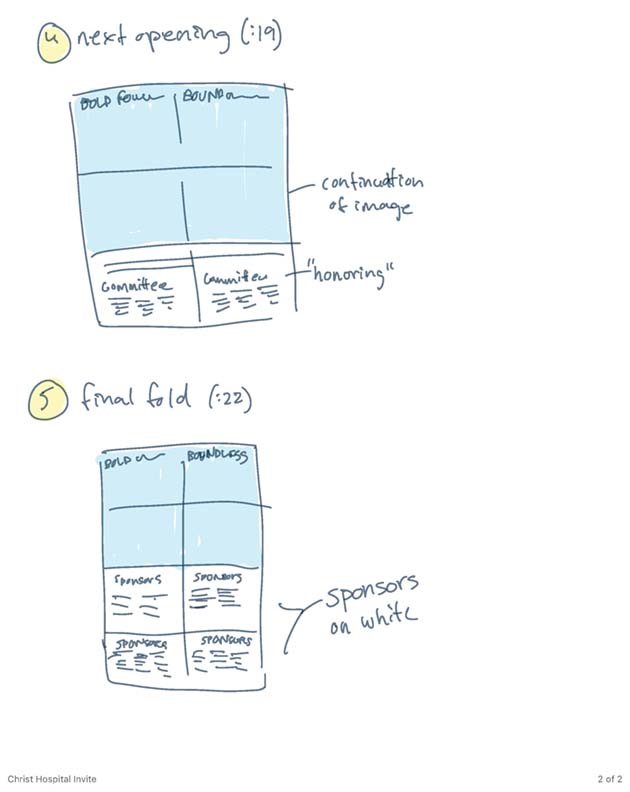 4 next opening (:19)
BOLD
BOUND
continuation
of image
"honoring"
Committee
Committee
5 final fold (:22)
BOLD
BOUNDLESS
SPONSORS
SPONSORS
SPONSORS
SPONSORS
sponsors
on white
Christ Hospital Invite
2 of 2